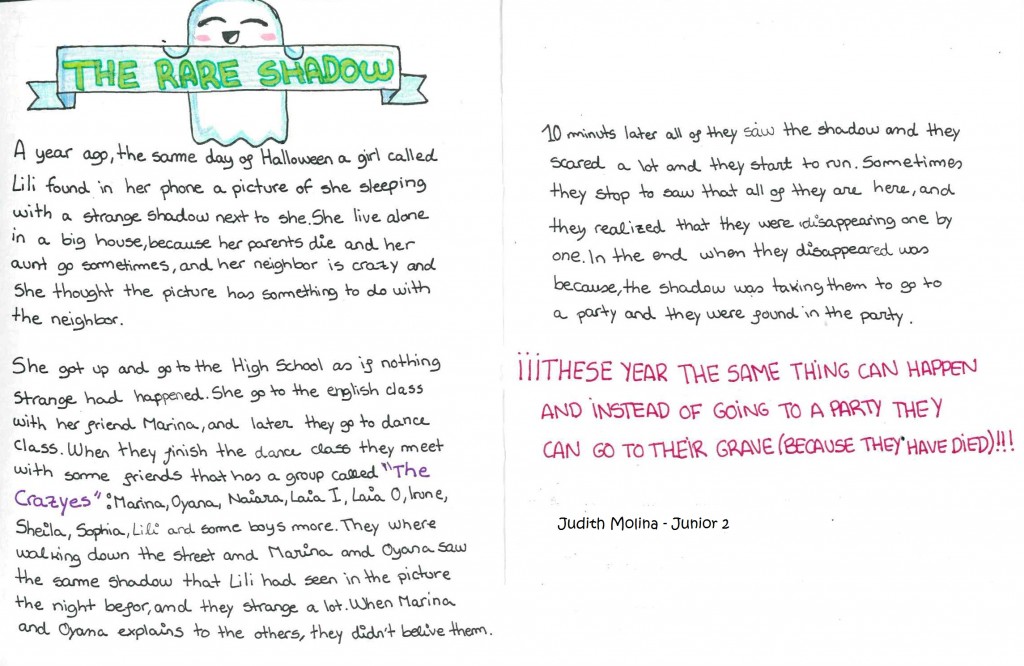 THE RARE SHADOW
A year ago, the same day of Halloween a girl called
Lili found in her phone a picture of she sleeping
with a strange shadow next to she. She live alone
in a big house, because her parents die and her
aunt go sometimes, and her neighbor is crazy and
She thought the picture has something to do with
the neighbor.
She got up and go to the High School as if nothing
strange had happened. She go to the english class
with her friend Marina, and later they go to dance
class. When they finish the dance class they meet
with some friends that has a group called "The
Crazyes": Marina, Oyana, Naiara, Laia I, Laia O, Irune,
Sheila, Sophia, Lili and some boys more. They where
walking down the street and Marina and Oyana saw
the same shadow that Lili had seen in the picture
the night befor, and they strange a lot. When Marina
and Oyana explains to the others, they didn't belive them.
10 minuts later all of they saw the shadow and they
scared a lot and they start to run. Sometimes
they stop to saw that all of they are here, and
they realized that they were disappearing one by
one. In the end when they disappeared was
because, the shadow was taking them to go to
a party and they were found in the party.
¡¡¡THESE YEAR THE SAME THING CAN HAPPEN
AND INSTEAD OF GOING TO A PARTY THEY
CAN GO TO THEIR GRAVE (BECAUSE THEY HAVE DIED)!!!
Judith Molina - Junior 2